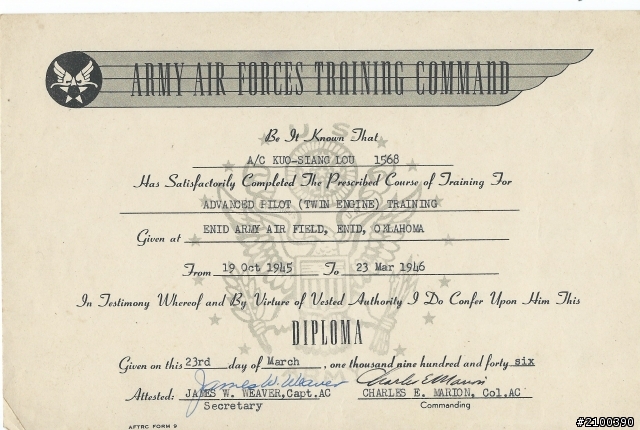 ARMY AIR FORCES TRAINING COMMAND
U S
Be It Known That
A/C KUO-SIANG LOU 1568
Has Satisfactorily Completed The Prescribed Course of Training For
ADVANCED PILOT (TWIN ENGINE) TRAINING
Given at ENID ARMY AIR FIELD, ENID, OKLAHOMA
From 19 Oct 1945 To 23 Mar 1946
In Testimony Whereof and By Virtue of Vested Authority I Do Confer Upon Him This
DIPLOMA
Given on this 23rd day of March, one thousand nine hundred and forty six
James W. Weaver Charles E. Marion
Attested: JAMES W. WEAVER, Capt. AC CHARLES E. MARION, Col, AC
Secretary Commanding
AFTRC FORM 9
#2100390